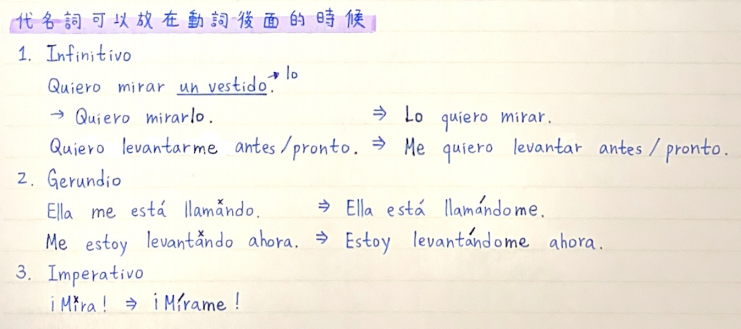 代名詞可以放在動詞後面的時候
1. Infinitivo
Quiero mirar un vestido. → lo
→ Quiero mirarlo. ⇒ Lo quiero mirar.
Quiero levantarme antes/pronto. ⇒ Me quiero levantar antes/pronto.
2. Gerundio
Ella me está llamando. ⇒ Ella está llamándome.
Me estoy levantando ahora. ⇒ Estoy levantándome ahora.
3. Imperativo
¡Mira! ⇒ ¡Mírame!